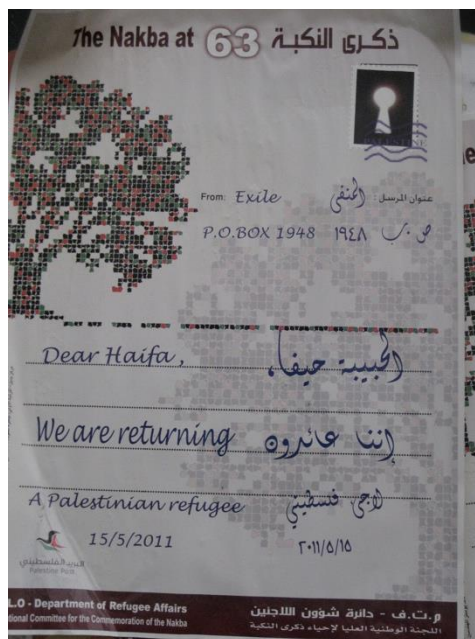 The Nakba at 63 ذكرى النكبة
From: Exile عنوان المرسل : المنفى
P.O.BOX 1948 ص.ب ١٩٤٨
Dear Haifa, الحبيبة حيفا،
We are returning إننا عائدون
A Palestinian refugee لاجئ فلسطيني
15/5/2011 ٢٠١١/٥/١٥
البريد الفلسطيني
Palestine Post
L.O - Department of Refugee Affairs م.ت.ف - دائرة شؤون اللاجئين
tional Committee for the Commemoration of the Nakba اللجنة الوطنية العليا لإحياء ذكرى النكبة